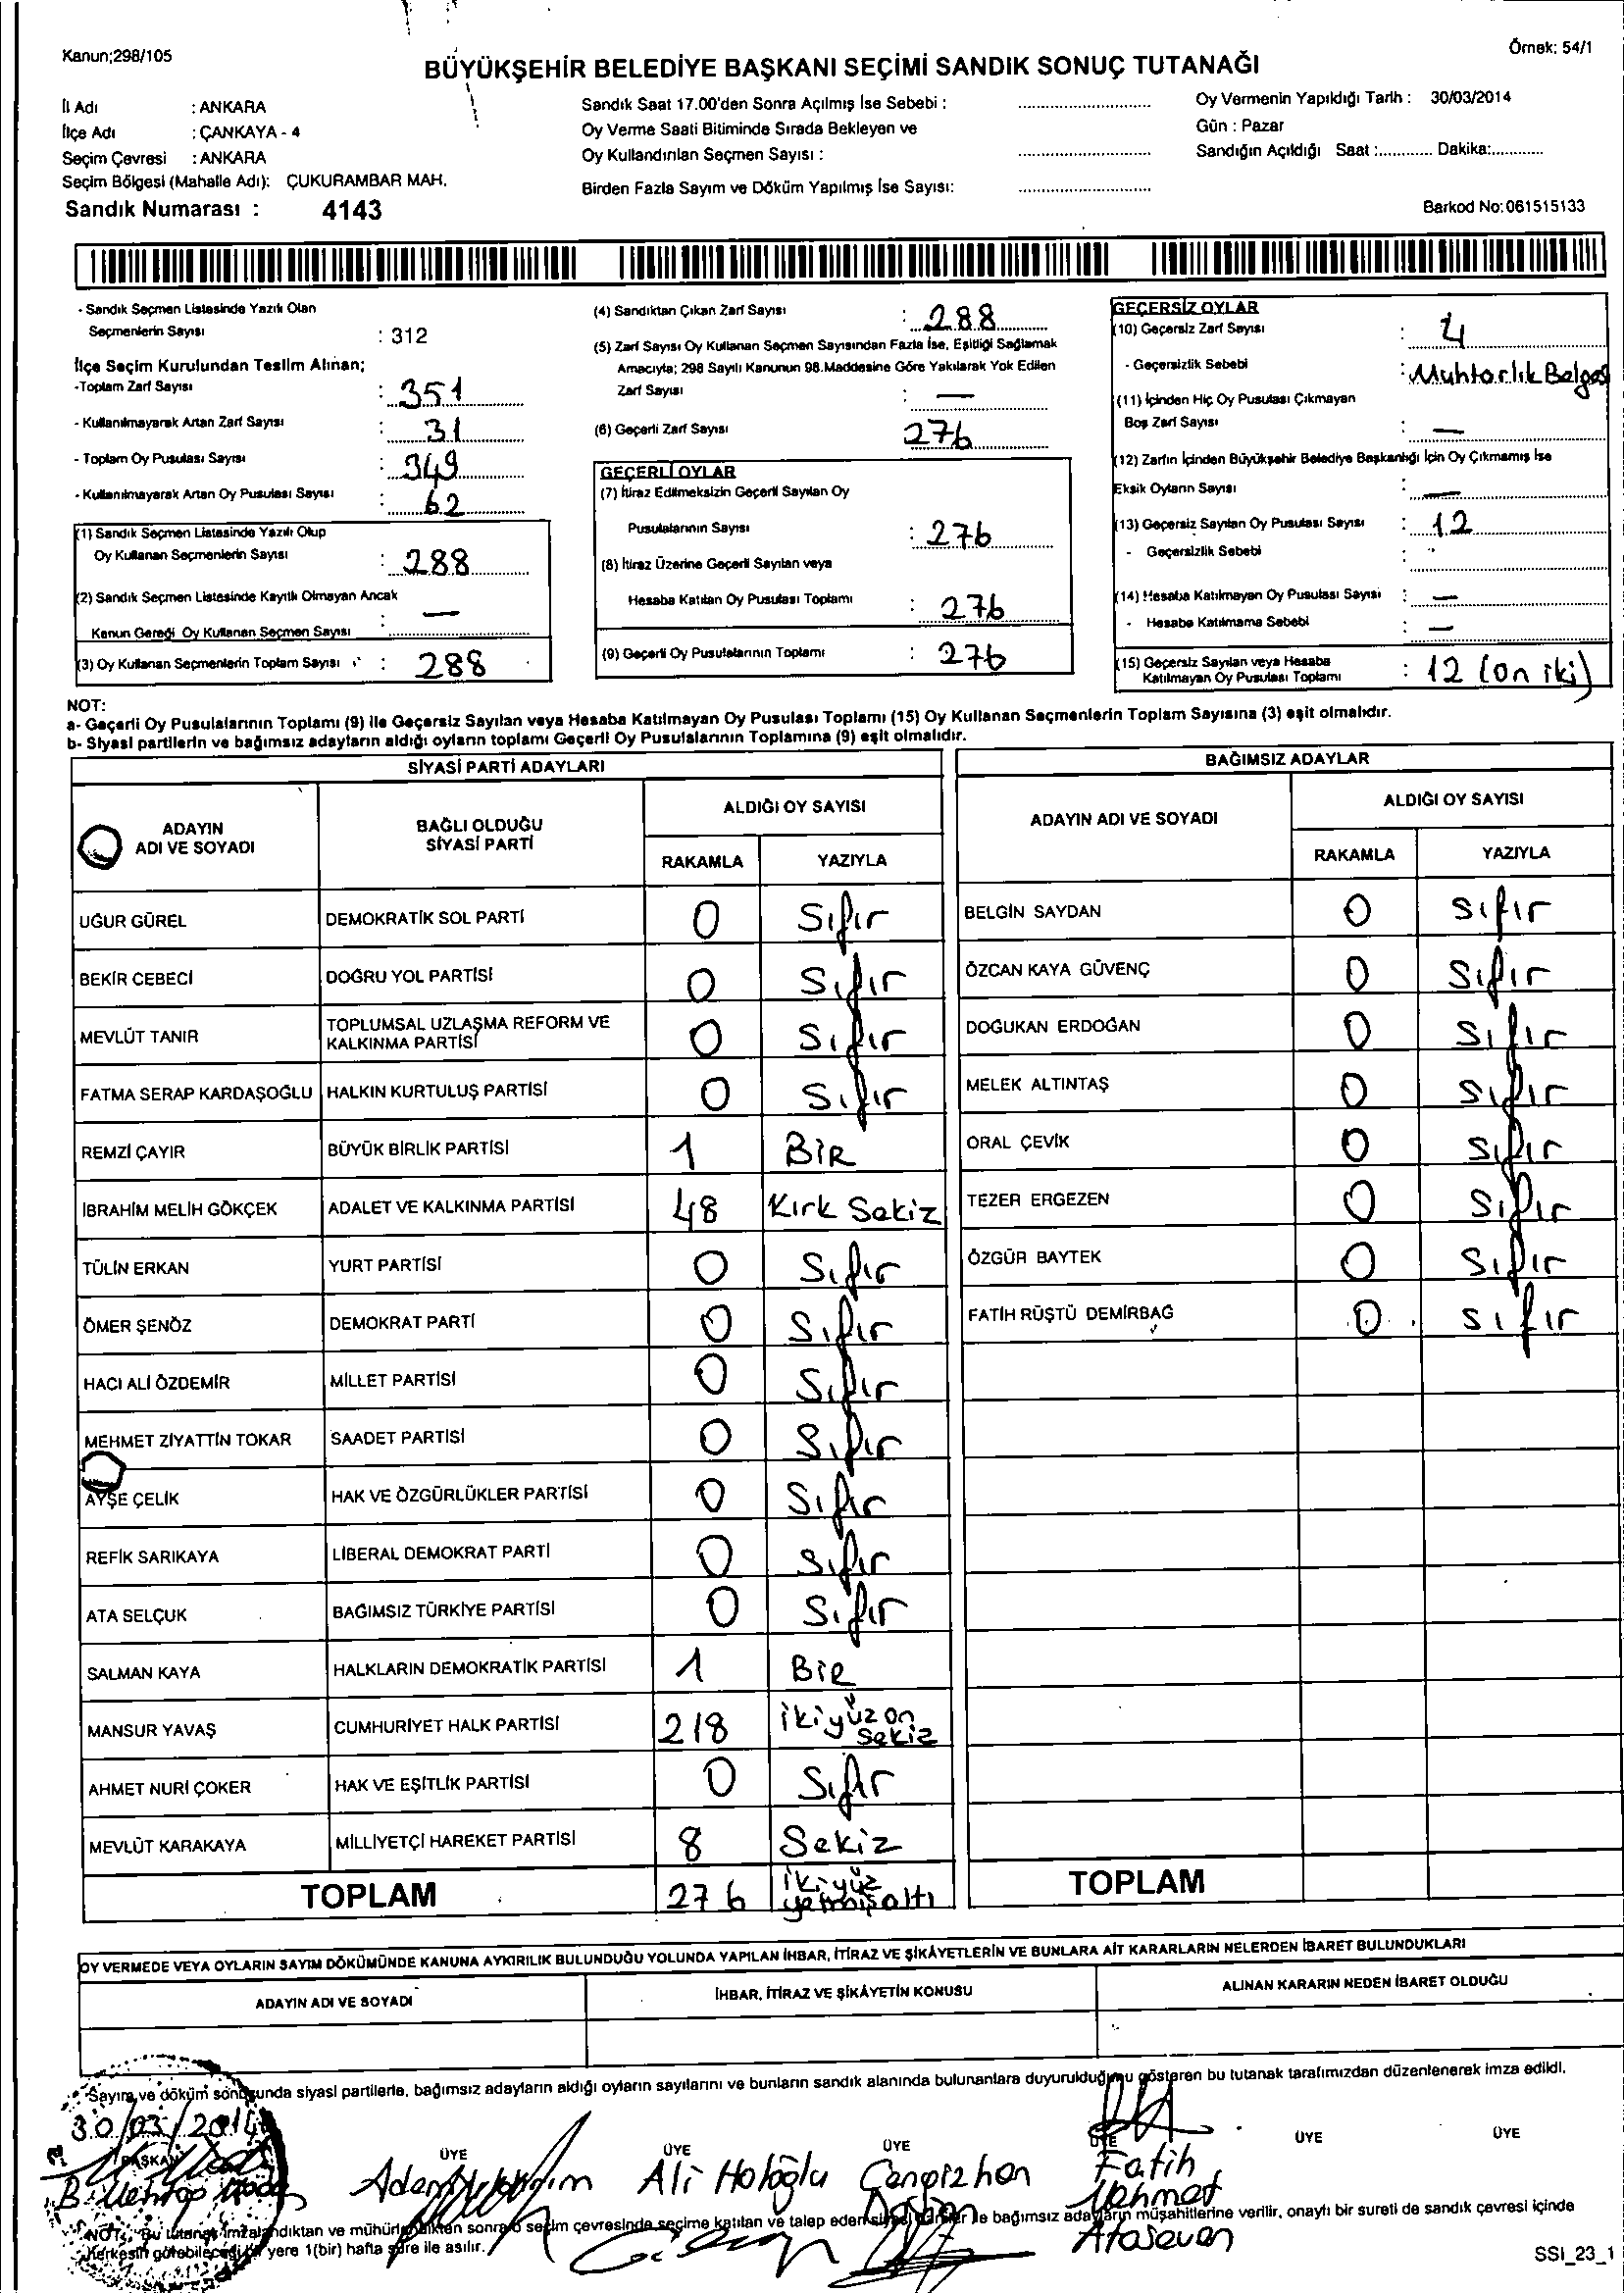 Kanun;298/105
Örnek: 54/1
BÜYÜKŞEHİR BELEDİYE BAŞKANI SEÇİMİ SANDIK SONUÇ TUTANAĞI
İl Adı : ANKARA
İlçe Adı : ÇANKAYA - 4
Seçim Çevresi : ANKARA
Seçim Bölgesi (Mahalle Adı): ÇUKURAMBAR MAH.
Sandık Numarası : 4143
Sandık Saat 17.00'den Sonra Açılmış İse Sebebi :
Oy Verme Saati Bitiminde Sırada Bekleyen ve
Oy Kullandırılan Seçmen Sayısı :
Birden Fazla Sayım ve Döküm Yapılmış İse Sayısı:
Oy Vermenin Yapıldığı Tarih : 30/03/2014
Gün : Pazar
Sandığın Açıldığı Saat :............ Dakika:............
Barkod No:061515133
- Sandık Seçmen Listesinde Yazılı Olan
Seçmenlerin Sayısı : 312
İlçe Seçim Kurulundan Teslim Alınan;
-Toplam Zarf Sayısı : 351
- Kullanılmayarak Artan Zarf Sayısı : 31
- Toplam Oy Pusulası Sayısı : 349
- Kullanılmayarak Artan Oy Pusulası Sayısı : 62
(1) Sandık Seçmen Listesinde Yazılı Olup
Oy Kullanan Seçmenlerin Sayısı : 288
(2) Sandık Seçmen Listesinde Kayıtlı Olmayan Ancak
Kanun Gereği Oy Kullanan Seçmen Sayısı : —
(3) Oy Kullanan Seçmenlerin Toplam Sayısı : 288
(4) Sandıktan Çıkan Zarf Sayısı : 288
(5) Zarf Sayısı Oy Kullanan Seçmen Sayısından Fazla İse, Eşitliği Sağlamak
Amacıyla; 298 Sayılı Kanunun 98.Maddesine Göre Yakılarak Yok Edilen
Zarf Sayısı : —
(6) Geçerli Zarf Sayısı 276
GEÇERLİ OYLAR
(7) İtiraz Edilmeksizin Geçerli Sayılan Oy
Pusulalarının Sayısı : 276
(8) İtiraz Üzerine Geçerli Sayılan veya
Hesaba Katılan Oy Pusulası Toplamı : 276
(9) Geçerli Oy Pusulalarının Toplamı : 276
GEÇERSİZ OYLAR
(10) Geçersiz Zarf Sayısı : 4
- Geçersizlik Sebebi : Muhtarlık Belges
(11) İçinden Hiç Oy Pusulası Çıkmayan
Boş Zarf Sayısı : —
(12) Zarfın İçinden Büyükşehir Belediye Başkanlığı İçin Oy Çıkmamış İse
Eksik Oyların Sayısı : —
(13) Geçersiz Sayılan Oy Pusulası Sayısı : 12
- Geçersizlik Sebebi :
(14) Hesaba Katılmayan Oy Pusulası Sayısı : —
- Hesaba Katılmama Sebebi : —
(15) Geçersiz Sayılan veya Hesaba
Katılmayan Oy Pusulası Toplamı : 12 (on iki)
NOT:
a- Geçerli Oy Pusulalarının Toplamı (9) ile Geçersiz Sayılan veya Hesaba Katılmayan Oy Pusulası Toplamı (15) Oy Kullanan Seçmenlerin Toplam Sayısına (3) eşit olmalıdır.
b- Siyasi partilerin ve bağımsız adayların aldığı oyların toplamı Geçerli Oy Pusulalarının Toplamına (9) eşit olmalıdır.
SİYASİ PARTİ ADAYLARI
ADAYIN ADI VE SOYADI
BAĞLI OLDUĞU SİYASİ PARTİ
ALDIĞI OY SAYISI
RAKAMLA YAZIYLA
UĞUR GÜREL DEMOKRATİK SOL PARTİ 0 Sıfır
BEKİR CEBECİ DOĞRU YOL PARTİSİ 0 Sıfır
MEVLÜT TANIR TOPLUMSAL UZLAŞMA REFORM VE KALKINMA PARTİSİ 0 Sıfır
FATMA SERAP KARDAŞOĞLU HALKIN KURTULUŞ PARTİSİ 0 Sıfır
REMZİ ÇAYIR BÜYÜK BİRLİK PARTİSİ 1 BİR
İBRAHİM MELİH GÖKÇEK ADALET VE KALKINMA PARTİSİ 48 Kırk Sekiz
TÜLİN ERKAN YURT PARTİSİ 0 Sıfır
ÖMER ŞENÖZ DEMOKRAT PARTİ 0 Sıfır
HACI ALİ ÖZDEMİR MİLLET PARTİSİ 0 Sıfır
MEHMET ZİYATTİN TOKAR SAADET PARTİSİ 0 Sıfır
AYŞE ÇELİK HAK VE ÖZGÜRLÜKLER PARTİSİ 0 Sıfır
REFİK SARIKAYA LİBERAL DEMOKRAT PARTİ 0 Sıfır
ATA SELÇUK BAĞIMSIZ TÜRKİYE PARTİSİ 0 Sıfır
SALMAN KAYA HALKLARIN DEMOKRATİK PARTİSİ 1 BİR
MANSUR YAVAŞ CUMHURİYET HALK PARTİSİ 218 ikiyüz on sekiz
AHMET NURİ ÇOKER HAK VE EŞİTLİK PARTİSİ 0 Sıfır
MEVLÜT KARAKAYA MİLLİYETÇİ HAREKET PARTİSİ 8 Sekiz
TOPLAM 276 ikiyüz yetmişaltı
BAĞIMSIZ ADAYLAR
ADAYIN ADI VE SOYADI
ALDIĞI OY SAYISI
RAKAMLA YAZIYLA
BELGİN SAYDAN 0 Sıfır
ÖZCAN KAYA GÜVENÇ 0 Sıfır
DOĞUKAN ERDOĞAN 0 Sıfır
MELEK ALTINTAŞ 0 Sıfır
ORAL ÇEVİK 0 Sıfır
TEZER ERGEZEN 0 Sıfır
ÖZGÜR BAYTEK 0 Sıfır
FATİH RÜŞTÜ DEMİRBAĞ 0 Sıfır
TOPLAM
OY VERMEDE VEYA OYLARIN SAYIM DÖKÜMÜNDE KANUNA AYKIRILIK BULUNDUĞU YOLUNDA YAPILAN İHBAR, İTİRAZ VE ŞİKÂYETLERİN VE BUNLARA AİT KARARLARIN NELERDEN İBARET BULUNDUKLARI
ADAYIN ADI VE SOYADI İHBAR, İTİRAZ VE ŞİKÂYETİN KONUSU ALINAN KARARIN NEDEN İBARET OLDUĞU
Sayım ve döküm sonucunda siyasi partilerle, bağımsız adayların aldığı oyların sayılarını ve bunların sandık alanında bulunanlara duyurulduğunu gösteren bu tutanak tarafımızdan düzenlenerek imza edildi.
30/03/2014
BAŞKAN ÜYE ÜYE ÜYE ÜYE ÜYE ÜYE
Adem Ali Cengizhan Fatih Mehmet Ataseven
NOT: Bu tutanak imzalandıktan ve mühürlendikten sonra o seçim çevresinde seçime katılan ve talep eden siyasi partiler ile bağımsız adayların müşahitlerine verilir, onaylı bir sureti de sandık çevresi içinde
herkesin görebileceği bir yere 1(bir) hafta süre ile asılır.
SSI_23_1